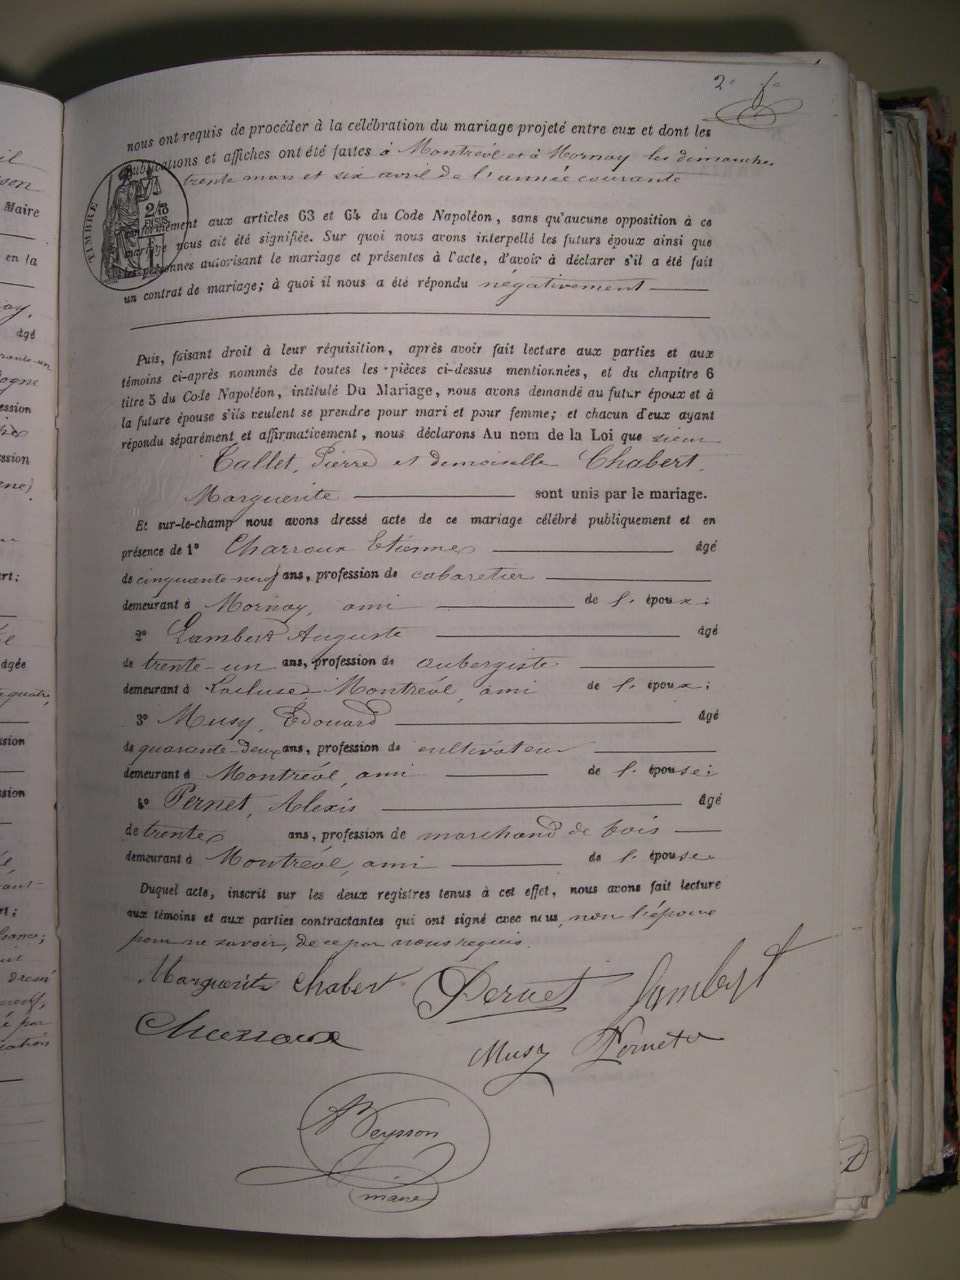 2e fo
nous ont requis de procéder à la célébration du mariage projeté entre eux et dont les
publications et affiches ont été faites à Montréal et à Mornay les dimanches
trente mars et six avril de l'année courante
conformément aux articles 63 et 64 du Code Napoléon, sans qu'aucune opposition à ce
mariage nous ait été signifiée. Sur quoi nous avons interpellé les futurs époux ainsi que
les personnes autorisant le mariage et présentes à l'acte, d'avoir à déclarer s'il a été fait
un contrat de mariage; à quoi il nous a été répondu négativement
TIMBRE
Puis, faisant droit à leur réquisition, après avoir fait lecture aux parties et aux
témoins ci-après nommés de toutes les pièces ci-dessus mentionnées, et du chapitre 6
titre 5 du Code Napoléon, intitulé Du Mariage, nous avons demandé au futur époux et à
la future épouse s'ils veulent se prendre pour mari et pour femme; et chacun d'eux ayant
répondu séparément et affirmativement, nous déclarons Au nom de la Loi que sieur
Tallet, Pierre et demoiselle Chabert,
Marguerite sont unis par le mariage.
Et sur-le-champ nous avons dressé acte de ce mariage célébré publiquement et en
présence de 1° Charroux Etienne âgé
de cinquante-neuf ans, profession de cabaretier
demeurant à Mornay, ami de l'époux;
2° Lambert Auguste âgé
de trente-un ans, profession de aubergiste
demeurant à Montréal, ami de l'époux;
3° Musy, Edouard âgé
de quarante-deux ans, profession de cultivateur
demeurant à Montréal, ami de l'épouse;
4° Pernet, Alexis âgé
de trente ans, profession de marchand de bois
demeurant à Montréal, ami de l'épouse
Duquel acte, inscrit sur les deux registres tenus à cet effet, nous avons fait lecture
aux témoins et aux parties contractantes qui ont signé avec nous, non l'époux
pour ne savoir, de ce par nous requis.
Marguerite Chabert Pernet Lambert
Charroux
Musy
maire